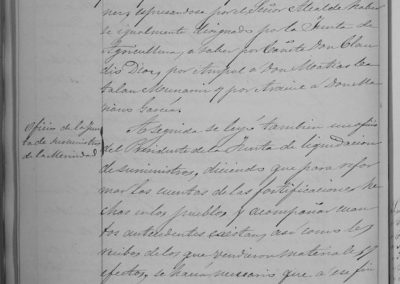 nes, expresandose por el Señor Alcalde haber
se igualmente designado por la Junta de
Agricultura, a saber por Cañete Don Clau
dio Diez, por Don Matias Ca
talan y por Don Ma
riano Garcia.
Oficio de la Jun
ta de suministros
de la Merindad
A seguida se leyó tambien un oficio
del Presidente de la Junta de liquidacion
de suministros, diciendo que para refor
mar las cuentas de las fortificaciones he
chas en los pueblos y acompañar cuan
tos antecedentes existan, asi como los
recibos de los que vendieron materiales y
efectos, se hacia necesario que a ese fin